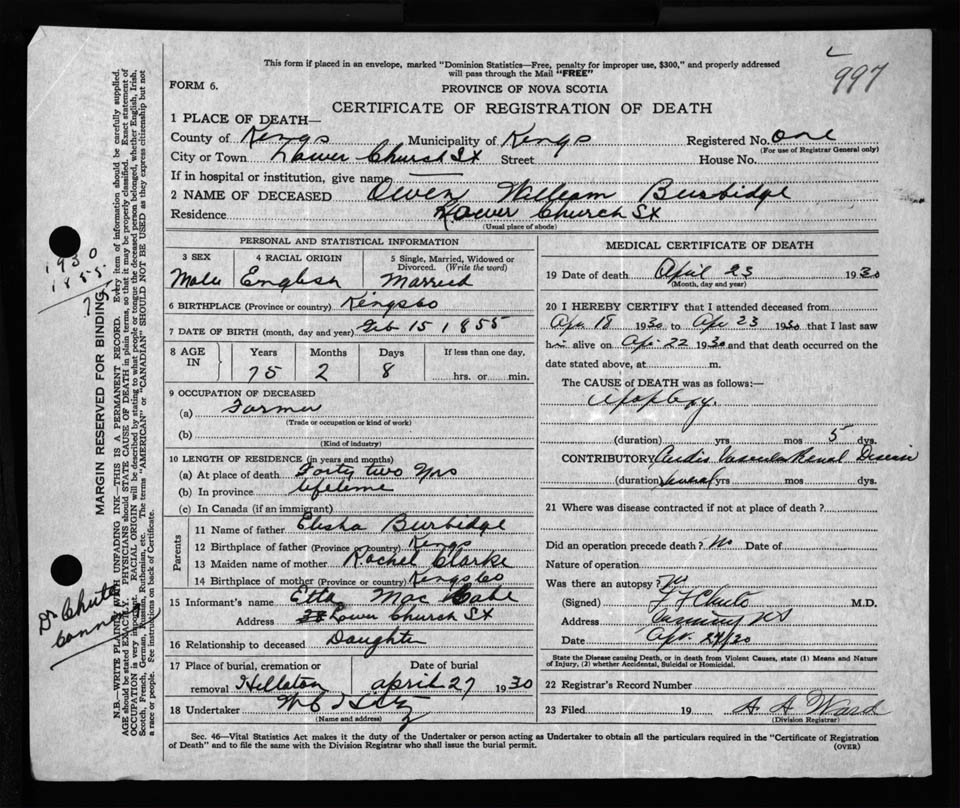 997
This form if placed in an envelope, marked "Dominion Statistics—Free, penalty for improper use, $300," and properly addressed
will pass through the Mail "FREE"
FORM 6.
PROVINCE OF NOVA SCOTIA
CERTIFICATE OF REGISTRATION OF DEATH
1 PLACE OF DEATH—
County of Kings Municipality of Kings Registered No. one
(For use of Registrar General only)
City or Town Lower Church St Street House No.
If in hospital or institution, give name
2 NAME OF DECEASED Owen William Burbidge
Residence Lower Church St
(Usual place of abode)
PERSONAL AND STATISTICAL INFORMATION
3 SEX Male
4 RACIAL ORIGIN English
5 Single, Married, Widowed or Divorced. (Write the word) Married
6 BIRTHPLACE (Province or country) Kings Co
7 DATE OF BIRTH (month, day and year) Feb 15 1855
8 AGE IN Years 75 Months 2 Days 8 If less than one day, hrs. or min.
9 OCCUPATION OF DECEASED
(a) Farmer
(Trade or occupation or kind of work)
(b)
(Kind of industry)
10 LENGTH OF RESIDENCE (in years and months)
(a) At place of death Forty two yrs
(b) In province lifetime
(c) In Canada (if an immigrant)
Parents
11 Name of father Elisha Burbidge
12 Birthplace of father (Province or country) Kings
13 Maiden name of mother Rachel Clarke
14 Birthplace of mother (Province or country) Kings Co
15 Informant's name Etta Mac
Address Lower Church St
16 Relationship to deceased Daughter
17 Place of burial, cremation or removal Hillaton
Date of burial april 27 1930
18 Undertaker
(Name and address)
MEDICAL CERTIFICATE OF DEATH
19 Date of death April 23 1930
(Month, day and year)
20 I HEREBY CERTIFY that I attended deceased from
Apr 18 1930 to Apr 23 1930 that I last saw
him alive on Apr 22 1930 and that death occurred on the
date stated above, at m.
The CAUSE of DEATH was as follows:—
Apoplexy.
(duration) yrs mos 5 dys.
CONTRIBUTORY Cardio Vascular Renal Disease
(duration) Several yrs mos dys.
21 Where was disease contracted if not at place of death?
Did an operation precede death? No Date of
Nature of operation
Was there an autopsy? no
(Signed) Chute M.D.
Address Canning NS
Date Apr. 24/30
State the Disease causing Death, or in death from Violent Causes, state (1) Means and Nature
of Injury, (2) whether Accidental, Suicidal or Homicidal.
22 Registrar's Record Number
23 Filed 19 A A Ward
(Division Registrar)
Sec. 46—Vital Statistics Act makes it the duty of the Undertaker or person acting as Undertaker to obtain all the particulars required in the "Certificate of Registration
of Death" and to file the same with the Division Registrar who shall issue the burial permit.
(OVER)
1930
1855
75
Dr Chute
Canning
MARGIN RESERVED FOR BINDING.
N.B.—WRITE PLAINLY WITH UNFADING INK—THIS IS A PERMANENT RECORD. Every item of information should be carefully supplied.
AGE should be stated EXACTLY. PHYSICIANS should STATE CAUSE OF DEATH in plain terms, so that it may be properly classified. Exact statement of
OCCUPATION is very important. RACIAL ORIGIN will be described by stating to what people or tongue the deceased person belonged, whether English, Irish,
Scotch, French, German, Russian, Ruthenian, etc. The terms "AMERICAN" or "CANADIAN" SHOULD NOT BE USED as they express citizenship but not
a race or people. See instructions on back of Certificate.